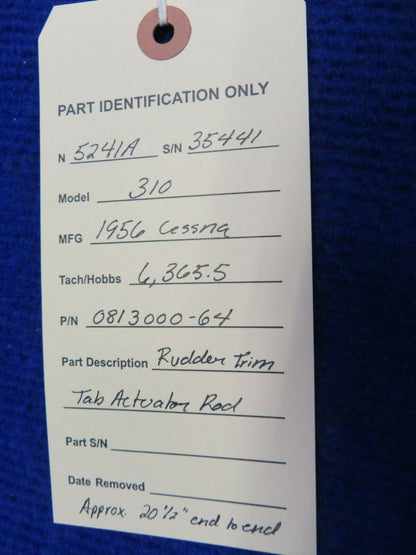 PART IDENTIFICATION ONLY
N 5241A S/N 35441
Model 310
MFG 1956 Cessna
Tach/Hobbs 6,365.5
P/N 0813000-64
Part Description Rudder Trim
Tab Actuator Rod
Part S/N
Date Removed
Approx. 20 1/2" end to end